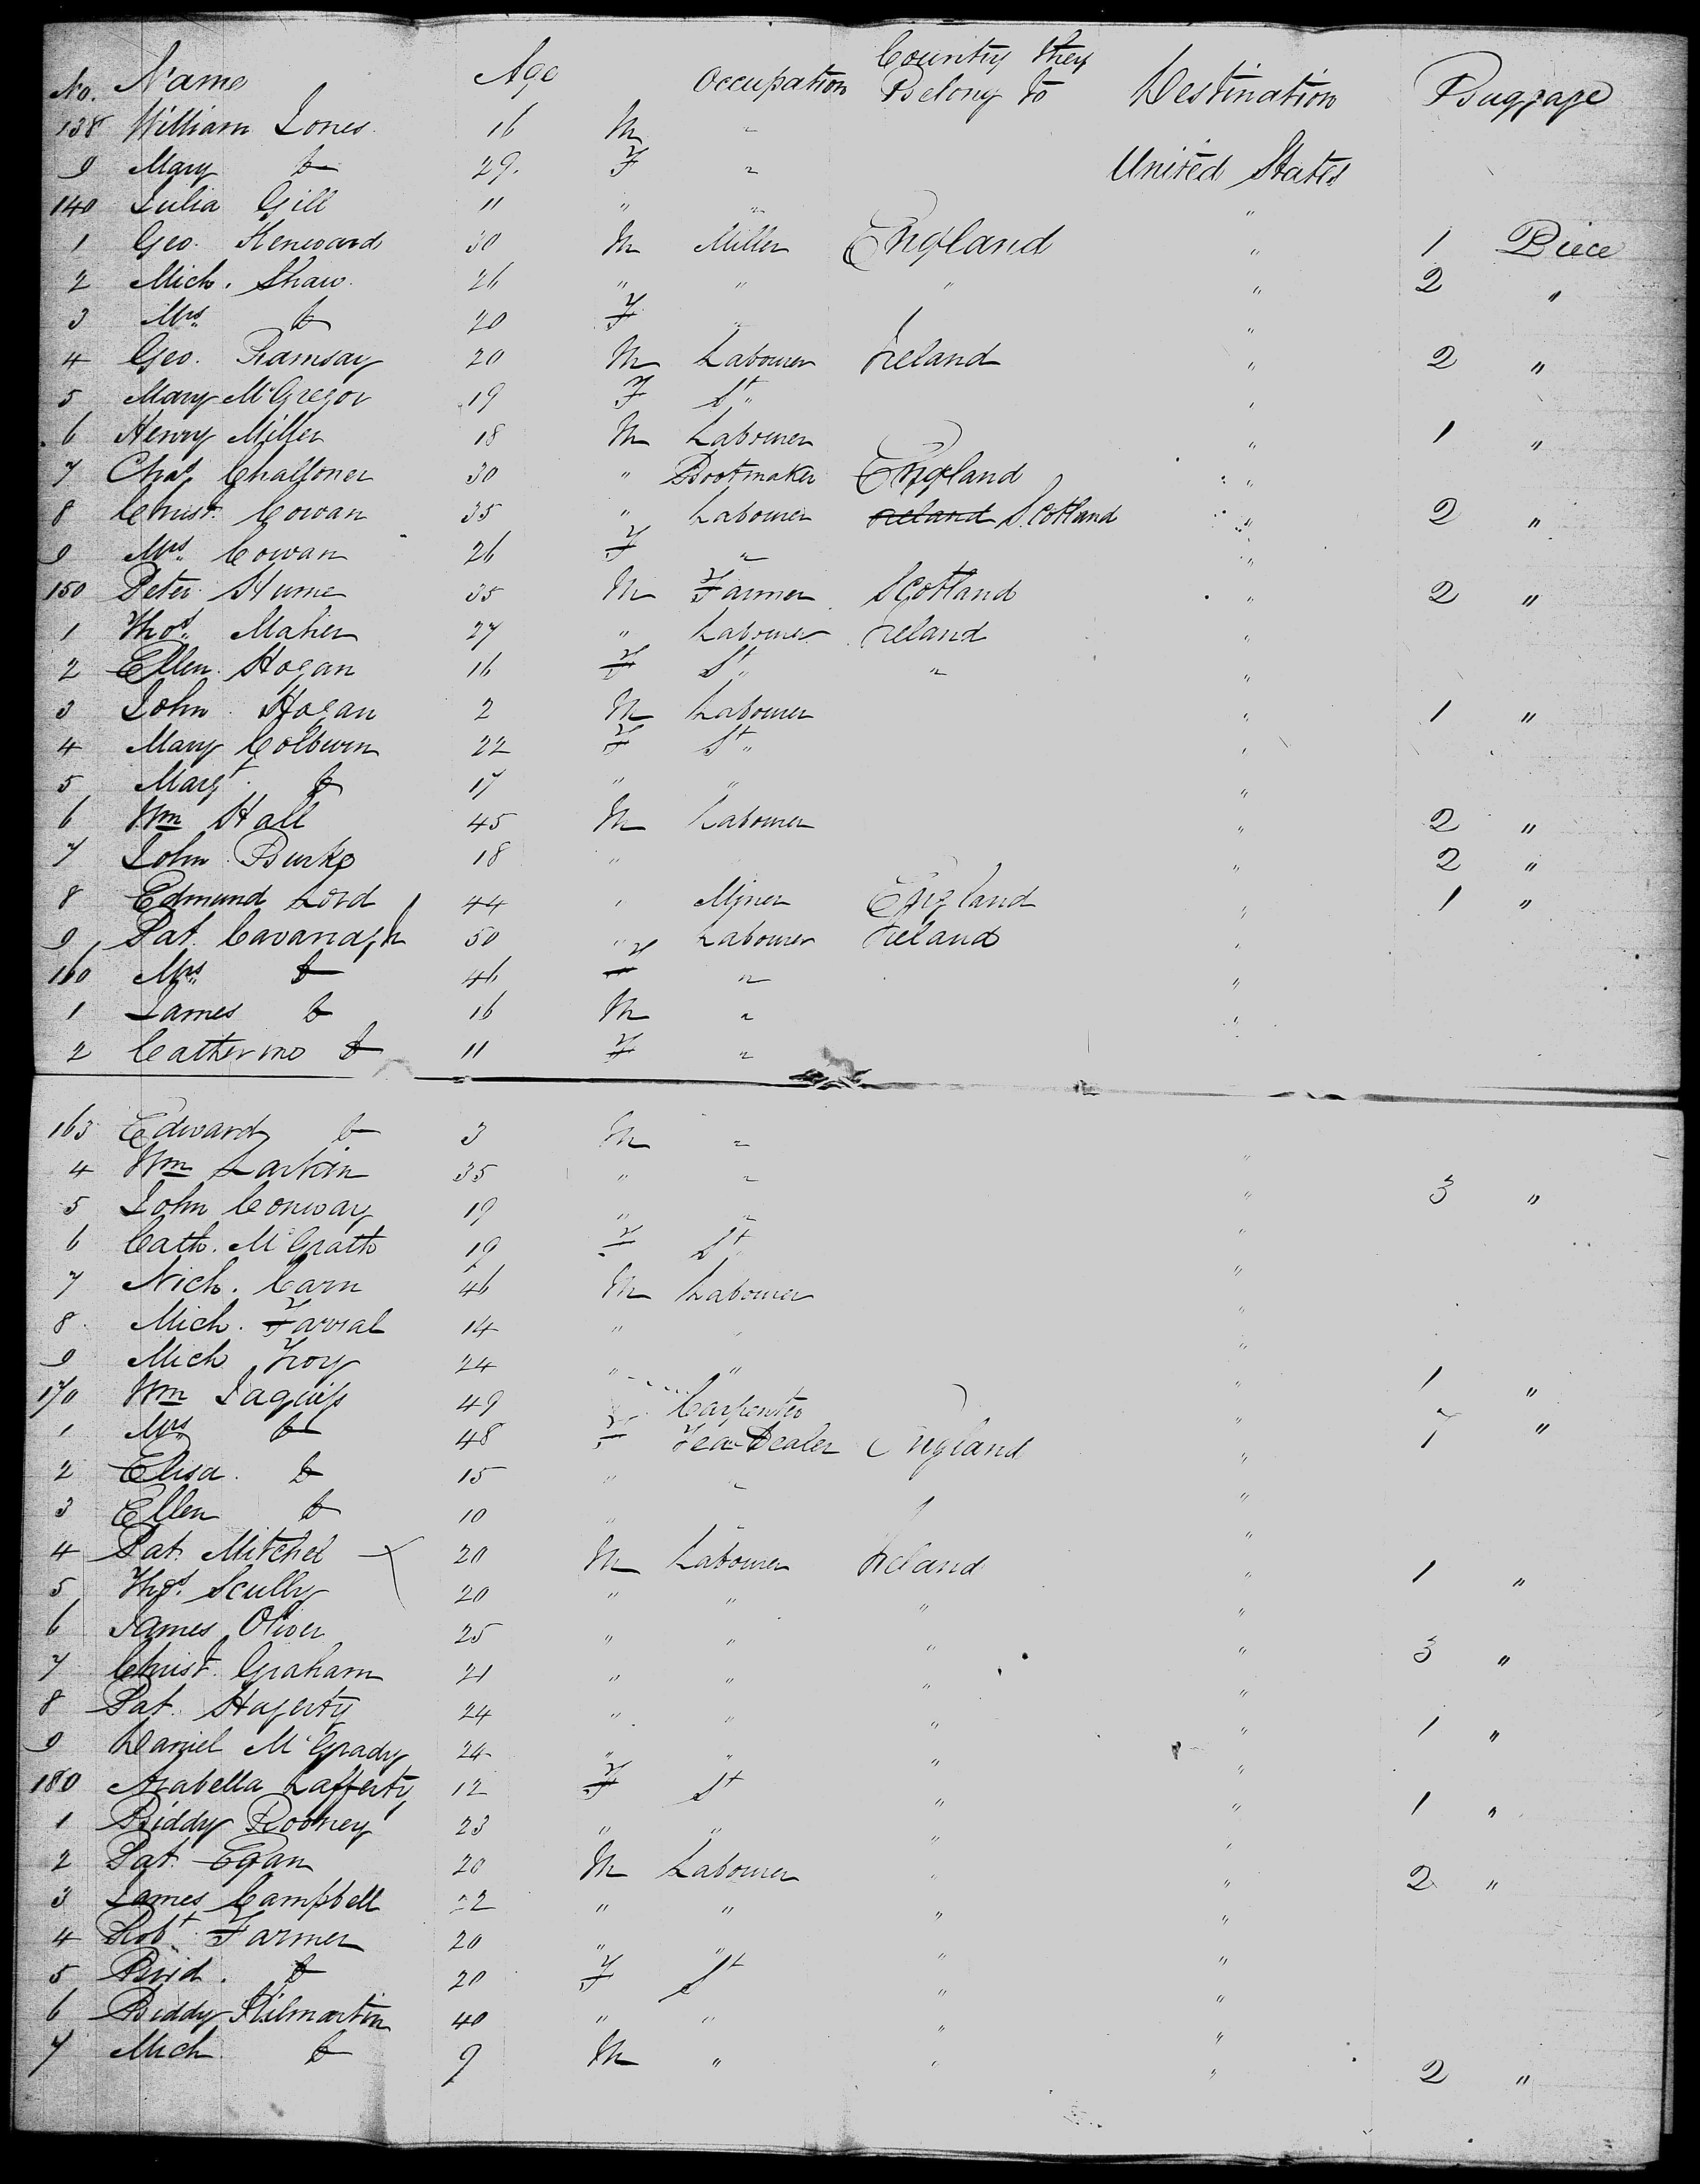 No. Name Age Occupation Country they Belong to Destination Baggage
138 William Jones 16 M "
9 Mary Do 29. F " United States
140 Julia Gill 11 " " "
1 Geo. Henward 30 M Miller England " 1 Piece
2 Mich. Shaw. 26 " " " " 2 "
3 Mrs. Do 20 F "
4 Geo. Ramsay 20 M Labourer Ireland " 2 "
5 Mary McGregor 19 F St. "
6 Henry Miller 18 M Labourer " 1 "
7 Chas. Challoner 30 " Bootmaker England "
8 Christ. Cowan 35 " Labourer Ireland Scotland " 2 "
9 Mrs. Cowan 26 F " "
150 Peter Hume 35 M Farmer Scotland " 2 "
1 Thos. Maher 27 " Labourer Ireland "
2 Ellen Hogan 16 F St. " "
3 John Hogan 2 M Labourer " 1 "
4 Mary 22 F St. "
5 Margt. Do 17 " " "
6 Wm Hall 45 M Labourer " 2 "
7 John Burke 18 " " 2 "
8 Edmund Lord 44 " Miner England " 1 "
9 Pat. Cavanagh 50 " Labourer Ireland "
160 Mrs. Do 46 F " "
1 James Do 16 M " "
2 Catherine Do 11 F "
163 Edward Do 3 M " "
4 Wm Larkin 35 " " " 3 "
5 John Conway 19 " " "
6 Cath. McGrath 19 F St. "
7 Nich. Carn 46 M Labourer "
8 Mich. Farral 14 " " "
9 Mich Troy 24 " " " 1 "
170 Wm Jaquiss 49 Carpenter " 7 "
1 Mrs. Do 48 F Tea Dealer England "
2 Elisa. Do 15 " " "
3 Ellen Do 10 " " "
4 Pat. Mitchel 20 M Labourer Ireland " 1 "
5 Thos. Scully 20 " " " "
6 James Oliver 25 " " " " 3 "
7 Christ. Graham 21 " " " "
8 Pat. Hagerty 24 " " " " 1 "
9 Daniel McGrady 24 " " " "
180 Arabella Lafferty 12 F St " " 1 "
1 Biddy Rooney 23 " " " "
2 Pat. Egan 20 M Labourer " " 2 "
3 James Campbell 22 " " " "
4 Robt. Farmer 20 " " " "
5 Brid. Do 20 F St " "
6 Biddy Kilmartin 40 " " " "
7 Mich Do 9 M " " " 2 "